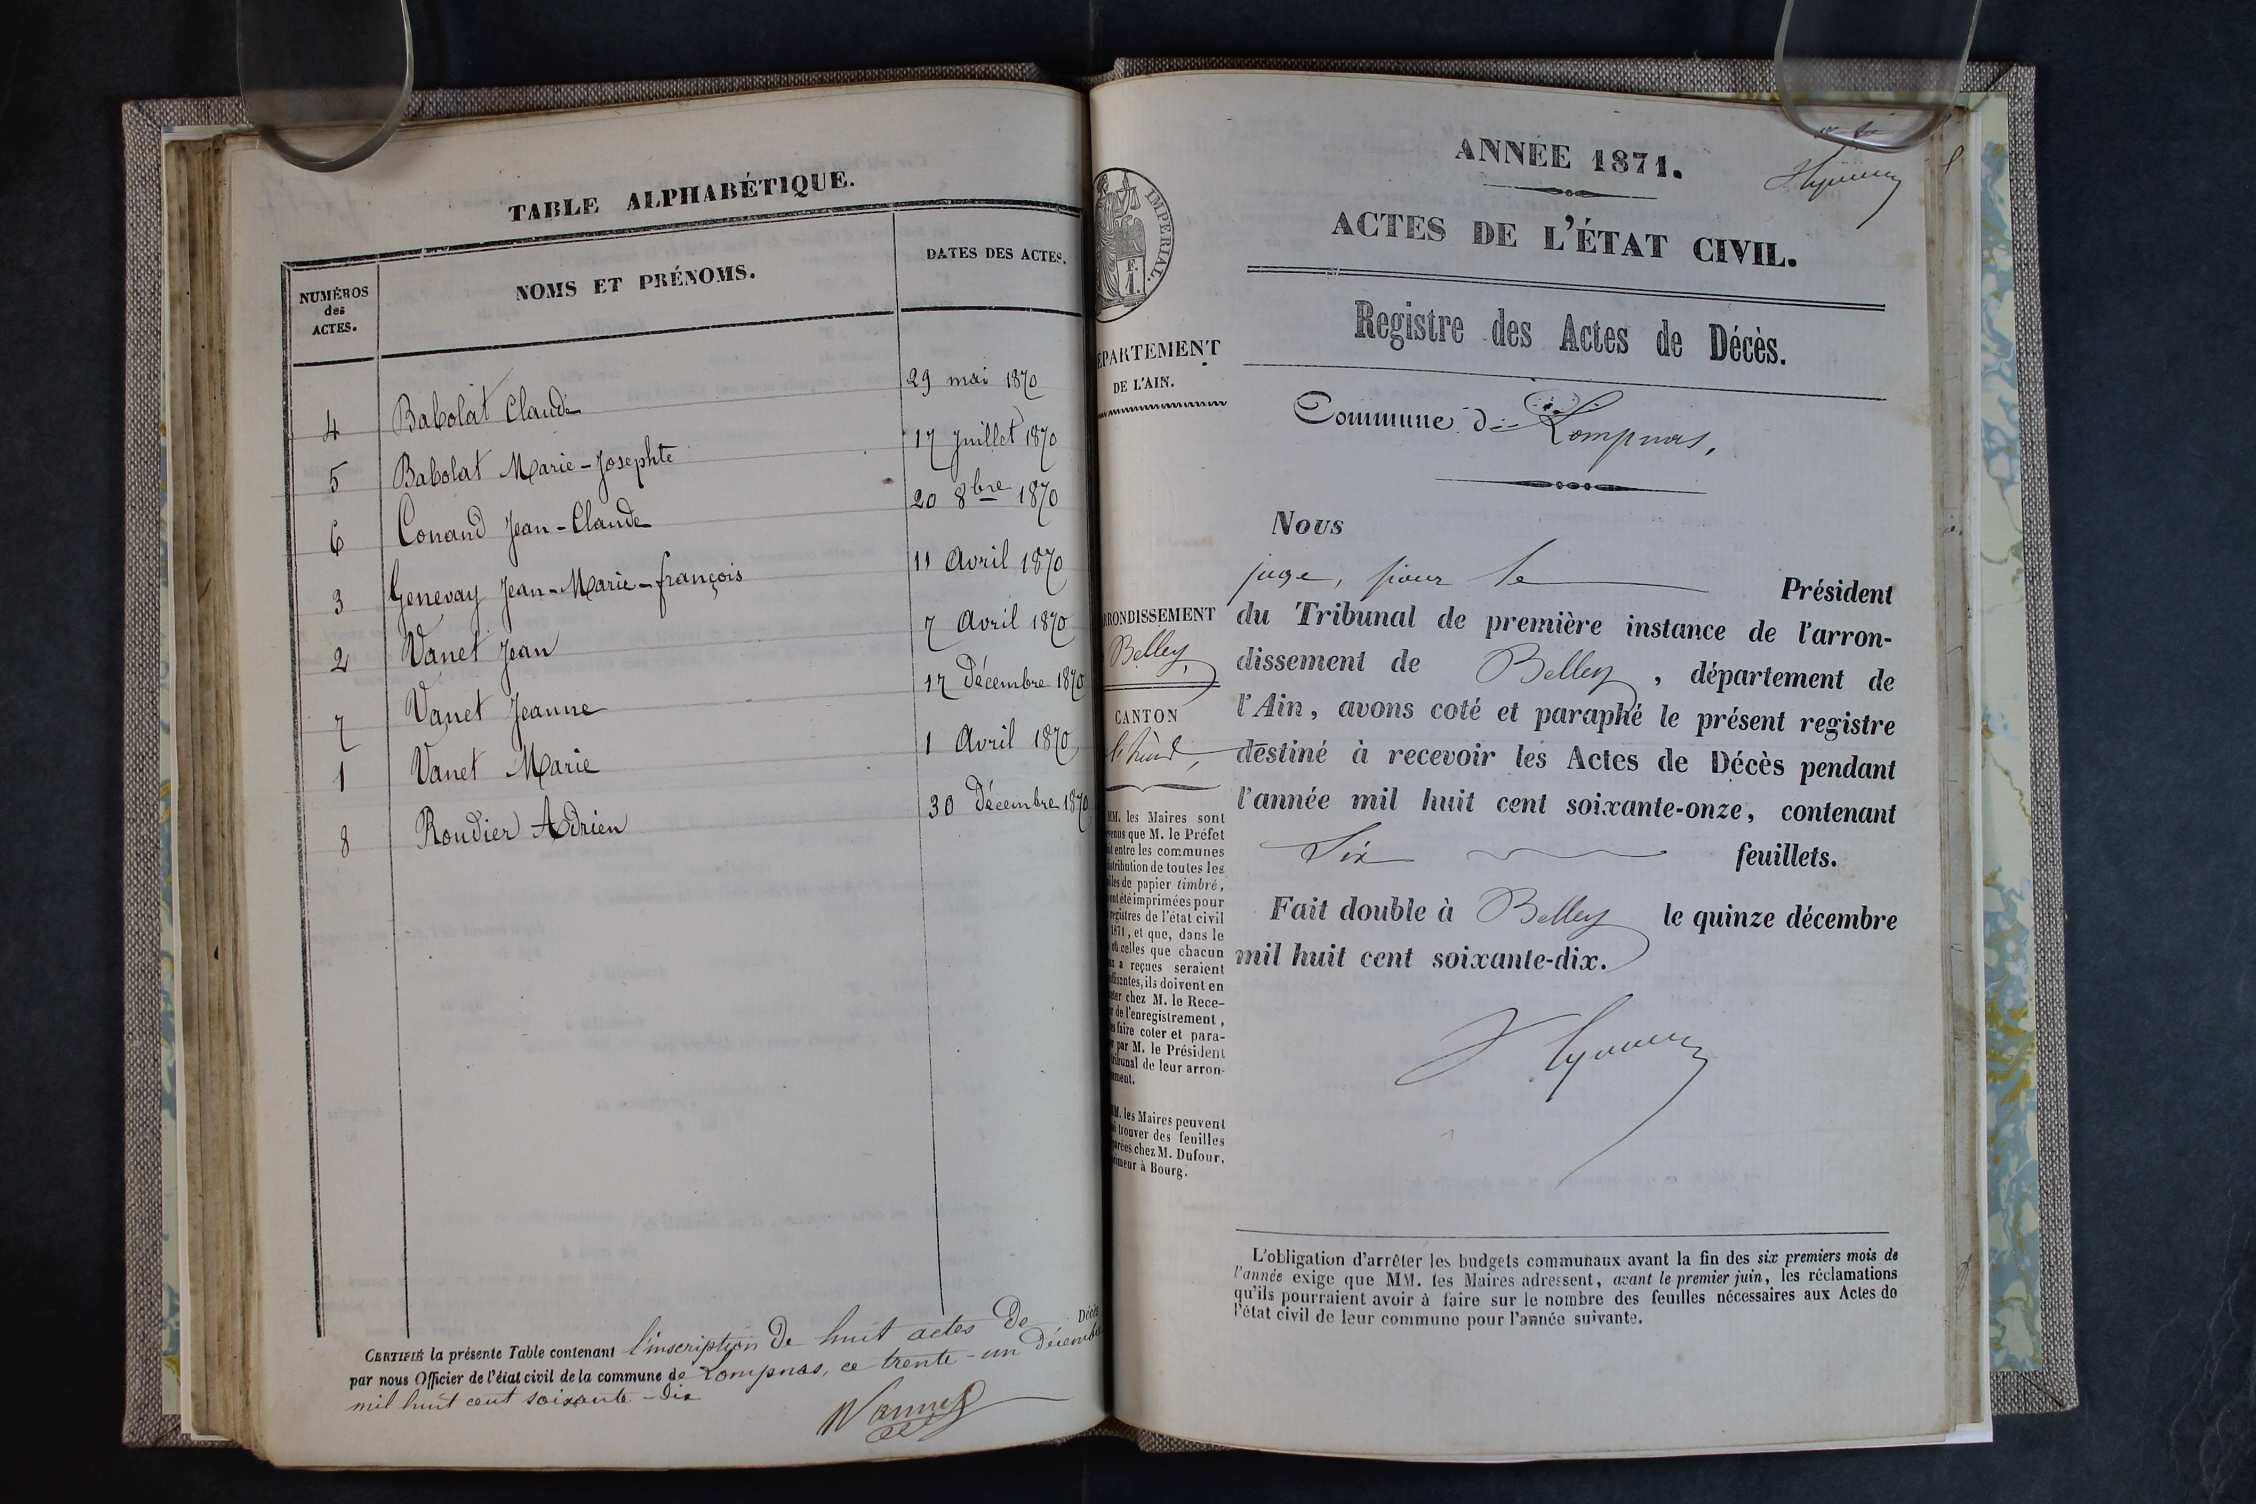 TABLE ALPHABÉTIQUE.
NUMÉROS
des
ACTES.
NOMS ET PRÉNOMS.
DATES DES ACTES.
4 Babolat Claude 29 mai 1870
5 Babolat Marie-Josephte 17 Juillet 1870
6 Conand Jean-Claude 20 8bre 1870
3 Genevay Jean-Marie-françois 11 Avril 1870
2 Vanet Jean 7 Avril 1870
7 Vanet Jeanne 17 Décembre 1870
1 Vanet Marie 1 Avril 1870
8 Roudier Adrien 30 Décembre 1870
CERTIFIÉ la présente Table contenant l'inscription De huit actes De Décès
par nous Officier de l'état civil de la commune de Lompnas, ce trente-un Décembre
mil huit cent soixante-Dix
ANNÉE 1871.
ACTES DE L'ÉTAT CIVIL.
Registre des Actes de Décès.
IMPERIAL.
F.
1.
EPARTEMENT
DE L'AIN.
Commune de Lompnas,
Nous
juge, pour le Président
du Tribunal de première instance de l'arron-
dissement de Belley, département de
l'Ain, avons coté et paraphé le présent registre
destiné à recevoir les Actes de Décès pendant
l'année mil huit cent soixante-onze, contenant
Six feuillets.
Fait double à Belley le quinze décembre
mil huit cent soixante-dix.
RRONDISSEMENT
Belley,
CANTON
MM. les Maires sont
venus que M. le Préfet
it entre les communes
stribution de toutes les
illes de papier timbré,
ont été imprimées pour
registres de l'état civil
1871, et que, dans le
où celles que chacun
ux a reçues seraient
ffisantes, ils doivent en
eter chez M. le Rece-
r de l'enregistrement,
es faire coter et para-
r par M. le Président
ribunal de leur arron-
ment.
MM. les Maires peuvent
trouver des feuilles
parées chez M. Dufour,
imeur à Bourg.
L'obligation d'arrêter les budgets communaux avant la fin des six premiers mois de
l'année exige que MM. les Maires adressent, avant le premier juin, les réclamations
qu'ils pourraient avoir à faire sur le nombre des feuilles nécessaires aux Actes de
l'état civil de leur commune pour l'année suivante.